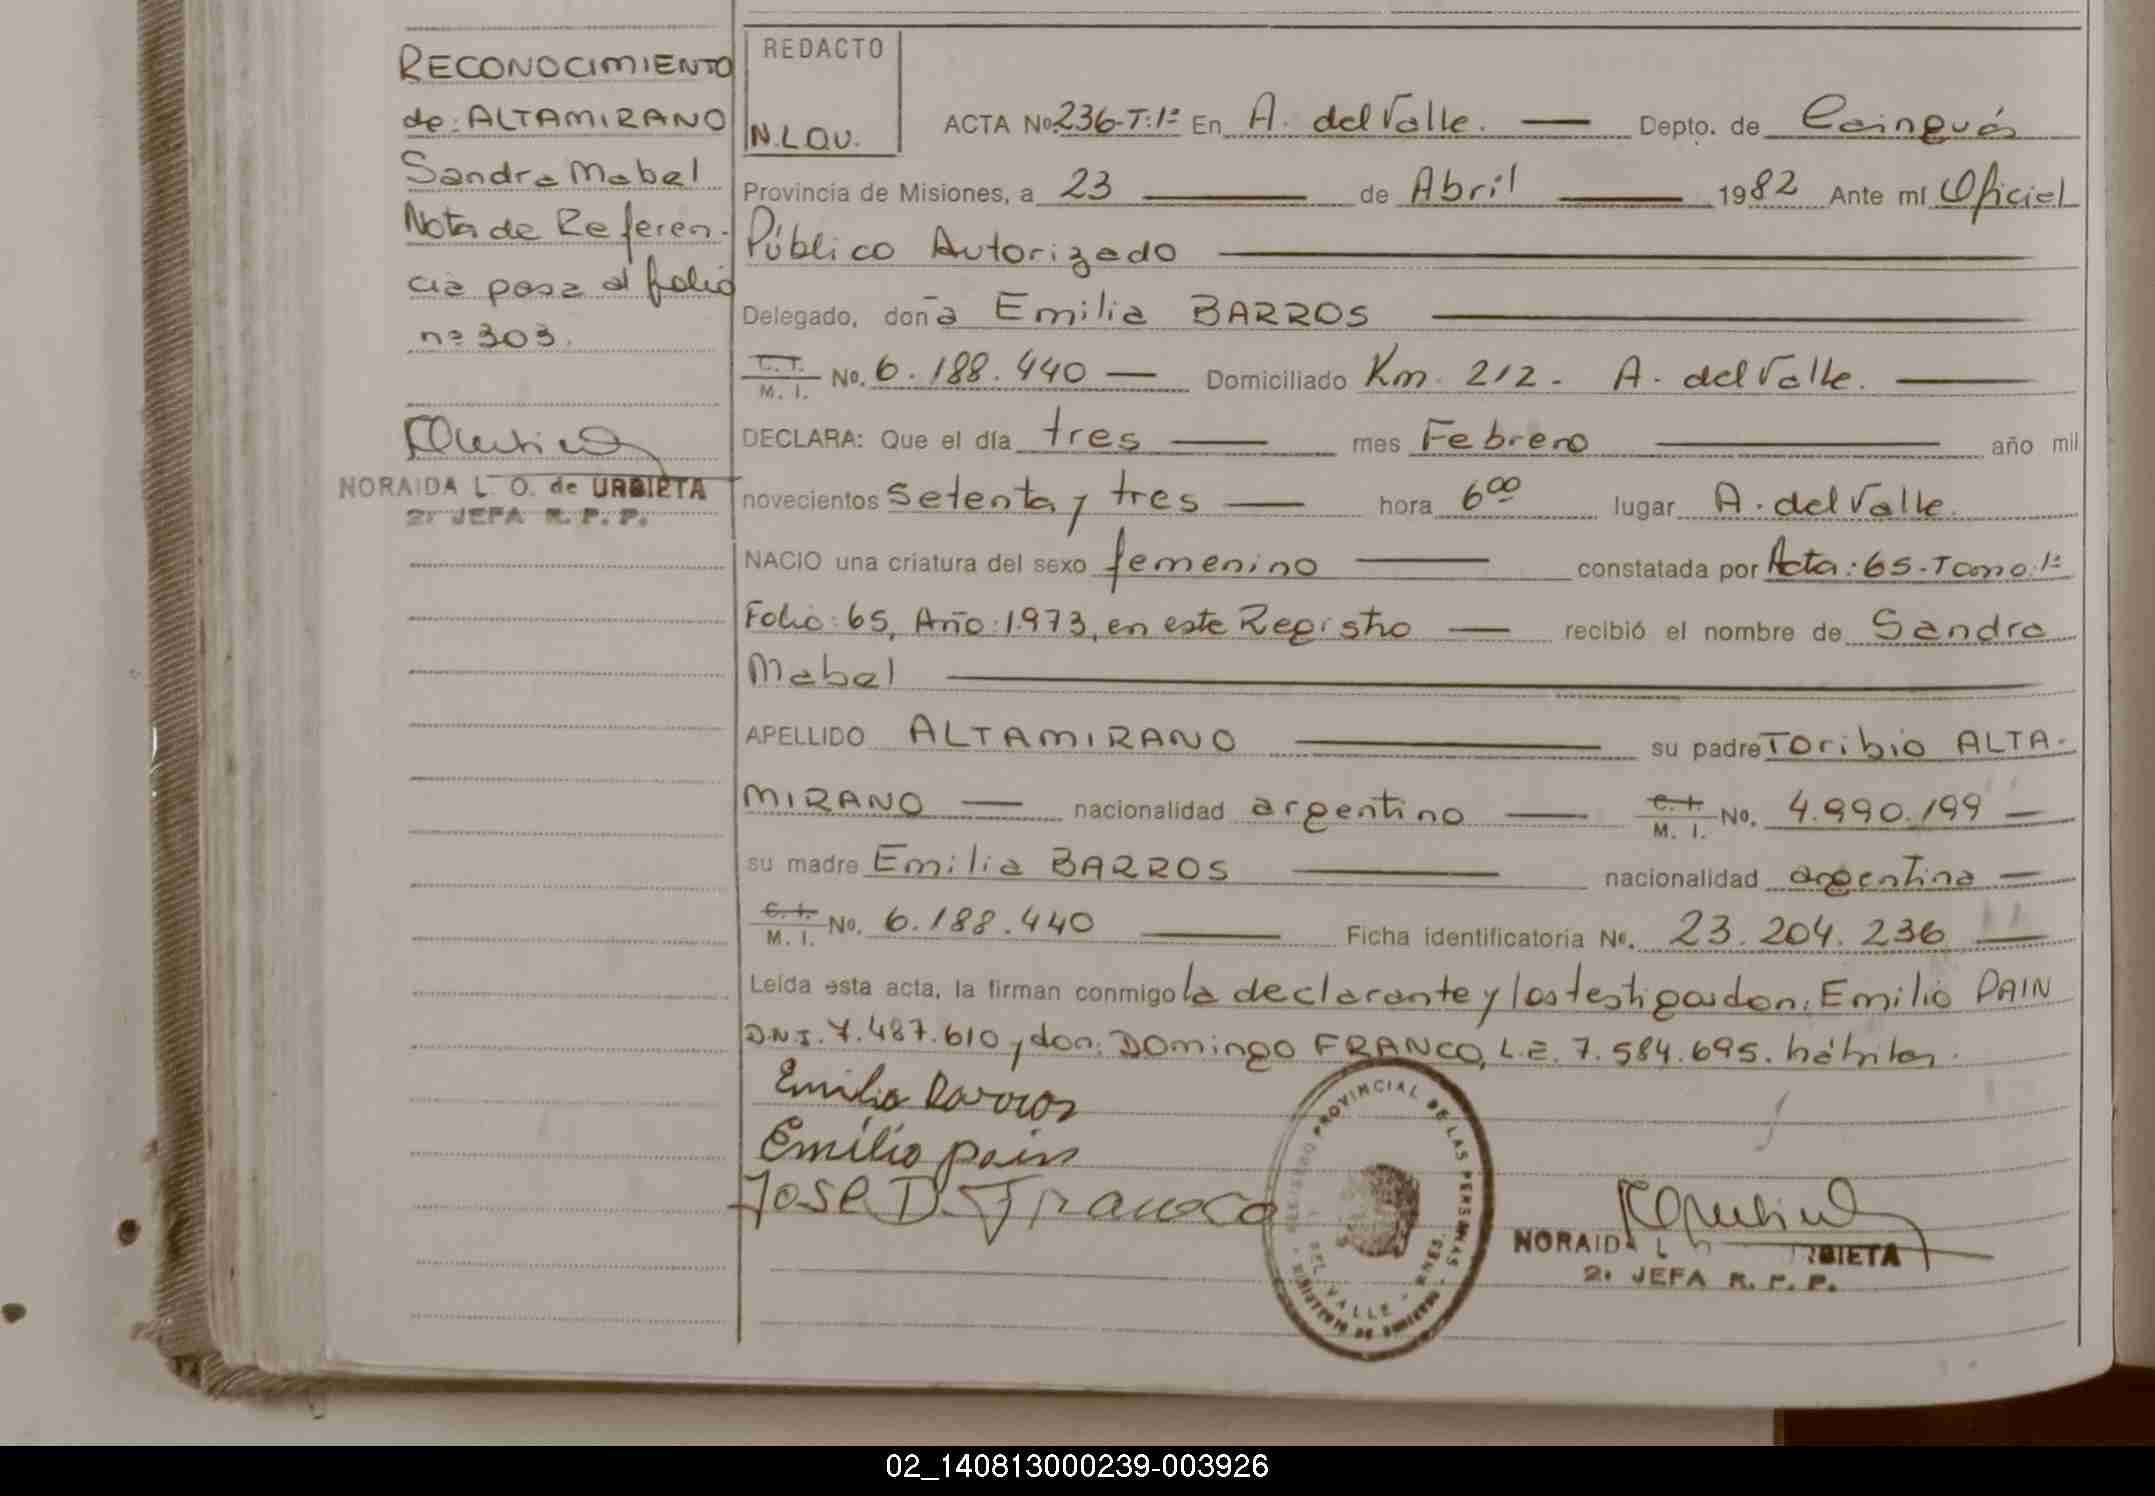 RECONOCIMIENTO
de: ALTAMIRANO
Sandra Mabel
Nota de Referen-
cia pasa al folio
nº 303.
NORAIDA L. O. de URBIETA
2ª JEFA R. P. P.
REDACTO
N.L.O.U.
ACTA Nº 236-T:1º En A. del Valle. Depto. de Cainguás
Provincia de Misiones, a 23 de Abril 1982 Ante mí Oficial
Público Autorizado
Delegado, doña Emilia BARROS
C. I. M. I. No. 6.188.440 Domiciliado Km. 212. A. del Valle.
DECLARA: Que el día tres mes Febrero año mil
novecientos setenta y tres hora 6 00 lugar A. del Valle.
NACIO una criatura del sexo femenino constatada por Acta: 65-Tomo:1º
Folio: 65, Año: 1973, en este Registro recibió el nombre de Sandra
Mabel
APELLIDO ALTAMIRANO su padre Toribio ALTA-
MIRANO nacionalidad argentino C. I. M. I. No. 4.990.199
su madre Emilia BARROS nacionalidad argentina
C. I. M. I. No. 6.188.440 Ficha identificatoria No. 23.204.236
Leída esta acta, la firman conmigo la declarante y los testigos don: Emilio PAIN
D.N.I. 7.487.610 y don: Domingo FRANCO, L.E. 7.584.695. hábiles.
Emilia Barros
Emilio pain
Jose D. Franco
REGISTRO PROVINCIAL DE LAS PERSONAS
DEL VALLE - MNES.
MINISTERIO DE GOBIERNO
NORAIDA L URBIETA
2ª JEFA R. P. P.
02_140813000239-003926